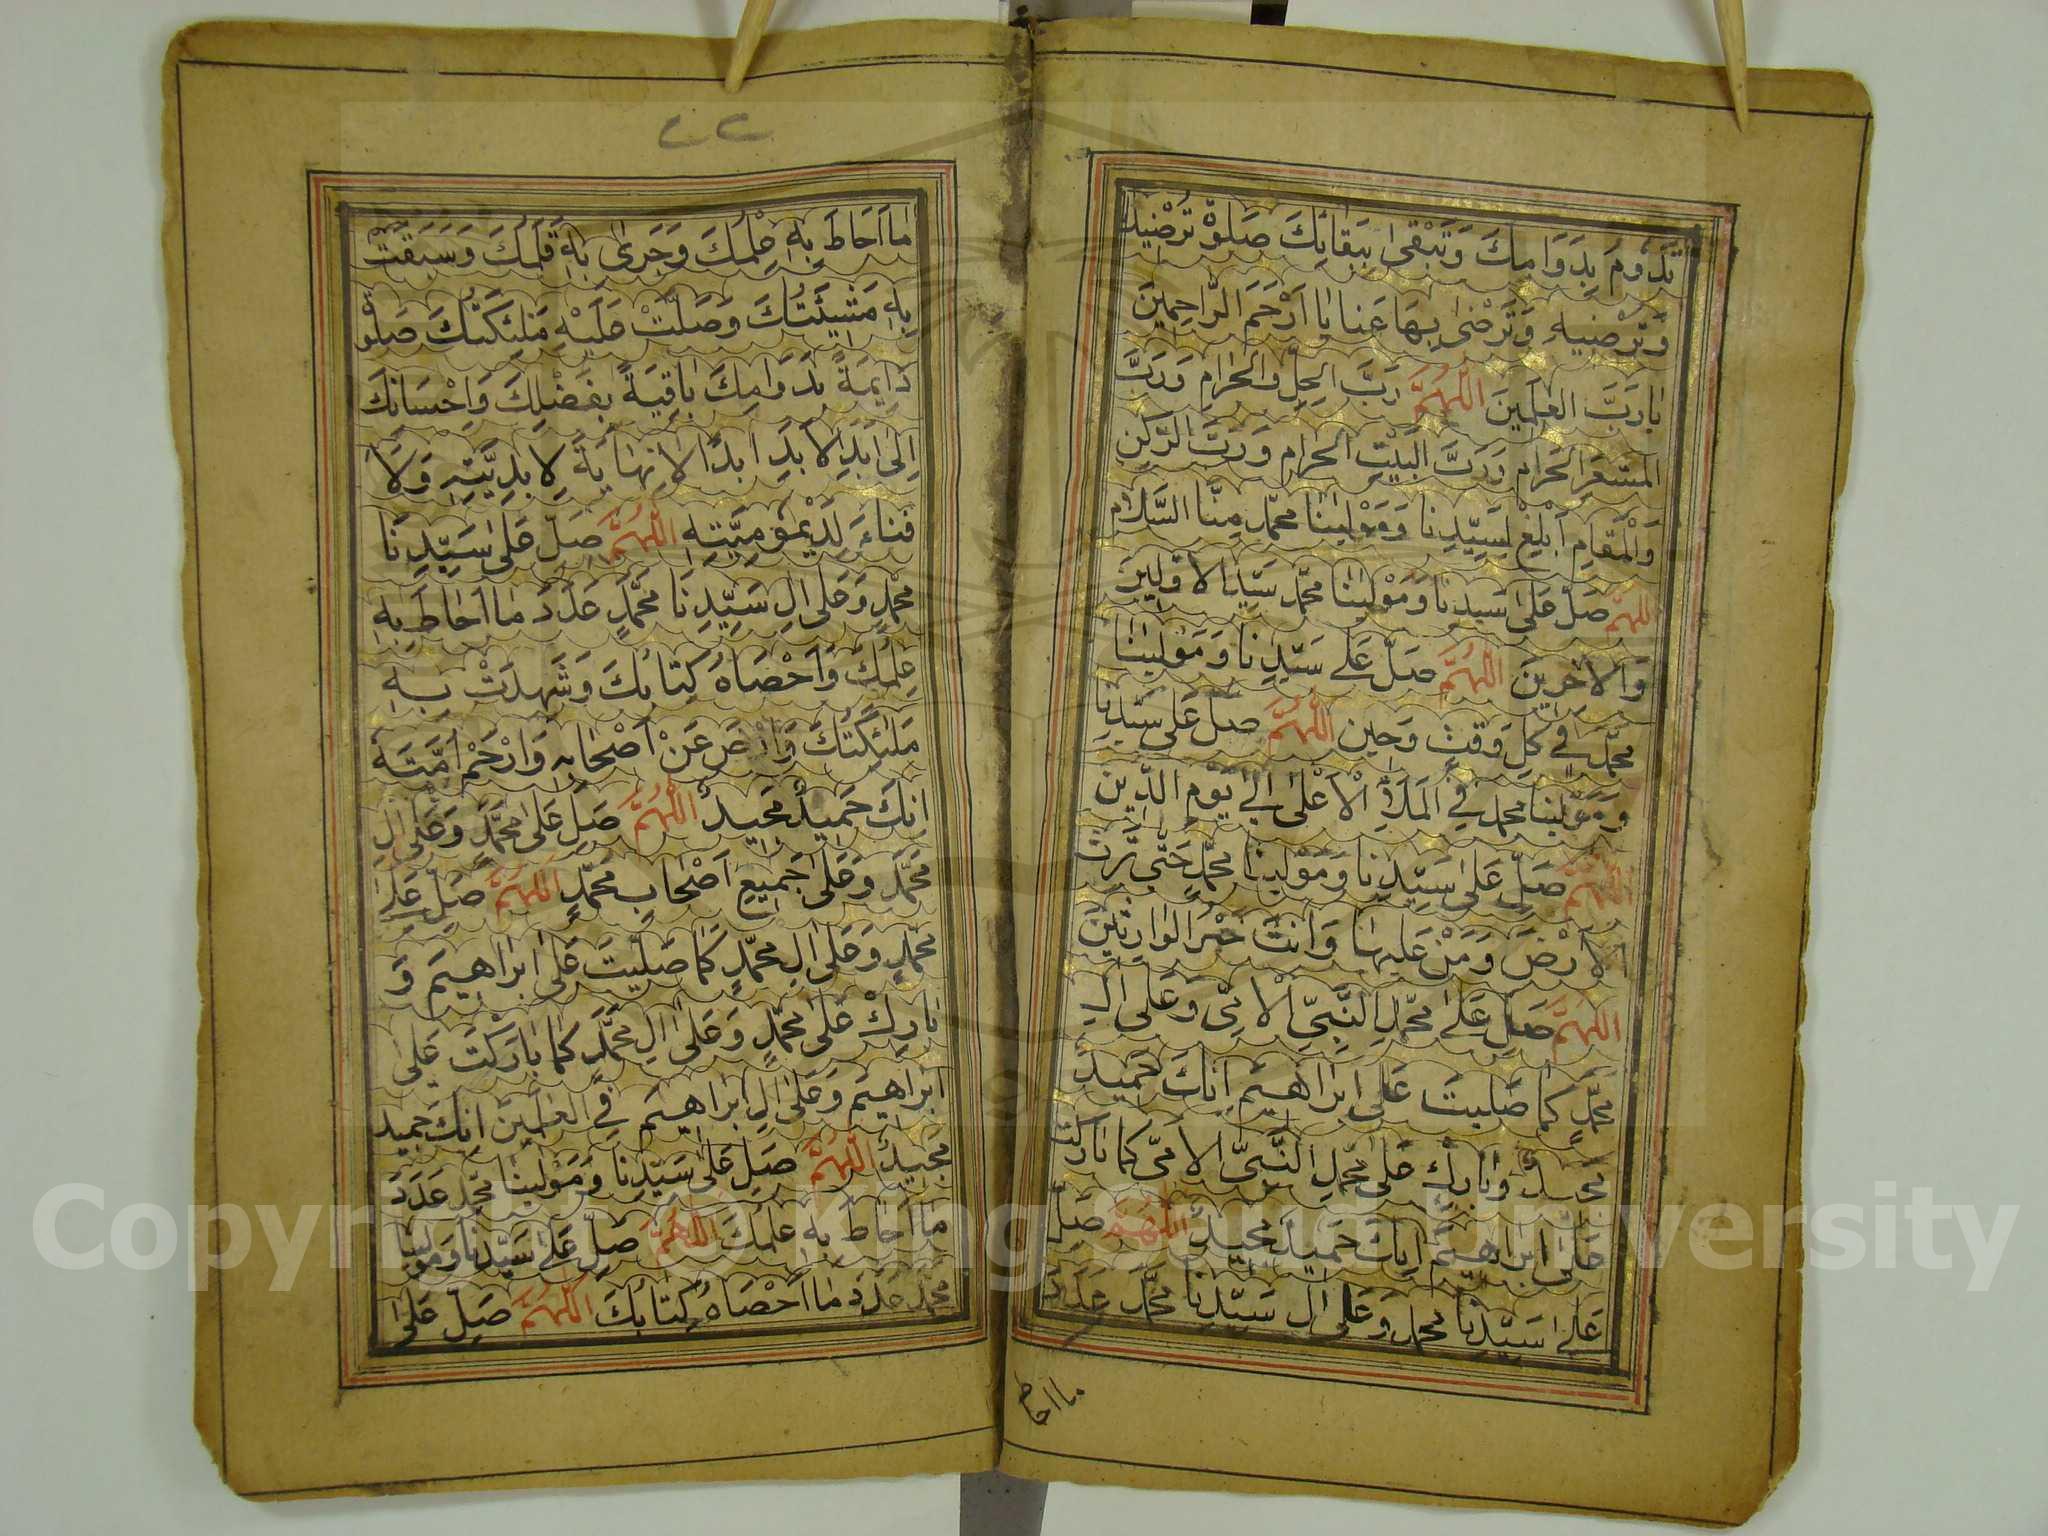 تَدُومُ بِدَوَامِكَ وَتَبْقٰى بِبَقَائِكَ صَلٰوةً تُرْضِيكَ
وَتُرْضِيهِ وَتَرْضٰى بِهَا عَنَّا يَا اَرْحَمَ الرَّاحِمِينَ
يَا رَبَّ الْعٰلَمِينَ اَللّٰهُمَّ رَبَّ الْحِلِّ وَالْحَرَامِ وَرَبَّ
الْمَشْعَرِ الْحَرَامِ وَرَبَّ الْبَيْتِ الْحَرَامِ وَرَبَّ الرُّكْنِ
وَالْمَقَامِ اَبْلِغْ لِسَيِّدِنَا وَمَوْلٰينَا مُحَمَّدٍ مِنَّا السَّلَامَ
اَللّٰهُمَّ صَلِّ عَلٰى سَيِّدِنَا وَمَوْلٰينَا مُحَمَّدٍ سَيِّدِ الْاَوَّلِينَ
وَالْاٰخِرِينَ اَللّٰهُمَّ صَلِّ عَلٰى سَيِّدِنَا وَمَوْلٰينَا
مُحَمَّدٍ فِي كُلِّ وَقْتٍ وَحِينٍ اَللّٰهُمَّ صَلِّ عَلٰى سَيِّدِنَا
وَمَوْلٰينَا مُحَمَّدٍ فِي الْمَلَاِ الْاَعْلٰى اِلٰى يَوْمِ الدِّينِ
اَللّٰهُمَّ صَلِّ عَلٰى سَيِّدِنَا وَمَوْلٰينَا مُحَمَّدٍ حَتّٰى تَرِثَ
الْاَرْضَ وَمَنْ عَلَيْهَا وَاَنْتَ خَيْرُ الْوَارِثِينَ
اَللّٰهُمَّ صَلِّ عَلٰى مُحَمَّدٍ النَّبِيِّ الْاُمِّيِّ وَعَلٰى اٰلِ
مُحَمَّدٍ كَمَا صَلَّيْتَ عَلٰى اِبْرَاهِيمَ اِنَّكَ حَمِيدٌ
مَجِيدٌ وَبَارِكْ عَلٰى مُحَمَّدٍ النَّبِيِّ الْاُمِّيِّ كَمَا بَارَكْتَ
عَلٰى اِبْرَاهِيمَ اِنَّكَ حَمِيدٌ مَجِيدٌ اَللّٰهُمَّ صَلِّ
عَلٰى سَيِّدِنَا مُحَمَّدٍ وَعَلٰى اٰلِ سَيِّدِنَا مُحَمَّدٍ عَدَدَ
ما احاط
٢٢
مَا اَحَاطَ بِهِ عِلْمُكَ وَجَرٰى بِهِ قَلَمُكَ وَسَبَقَتْ
بِهِ مَشِيئَتُكَ وَصَلَّتْ عَلَيْهِ مَلٰئِكَتُكَ صَلٰوةً
دَايِمَةً بِدَوَامِكَ بَاقِيَةً بِفَضْلِكَ وَاِحْسَانِكَ
اِلٰى اَبَدِ الْاَبَدِ اَبَدًا لَا نِهَايَةَ لِاَبَدِيَّتِهِ وَلَا
فَنَاءَ لِدَيْمُومِيَّتِهِ اَللّٰهُمَّ صَلِّ عَلٰى سَيِّدِنَا
مُحَمَّدٍ وَعَلٰى اٰلِ سَيِّدِنَا مُحَمَّدٍ عَدَدَ مَا اَحَاطَ بِهِ
عِلْمُكَ وَاَحْصَاهُ كِتَابُكَ وَشَهِدَتْ بِهِ
مَلٰئِكَتُكَ وَارْضَ عَنْ اَصْحَابِهِ وَارْحَمْ اُمَّتَهُ
اِنَّكَ حَمِيدٌ مَجِيدٌ اَللّٰهُمَّ صَلِّ عَلٰى مُحَمَّدٍ وَعَلٰى اٰلِ
مُحَمَّدٍ وَعَلٰى جَمِيعِ اَصْحَابِ مُحَمَّدٍ اَللّٰهُمَّ صَلِّ عَلٰى
مُحَمَّدٍ وَعَلٰى اٰلِ مُحَمَّدٍ كَمَا صَلَّيْتَ عَلٰى اِبْرَاهِيمَ وَ
بَارِكْ عَلٰى مُحَمَّدٍ وَعَلٰى اٰلِ مُحَمَّدٍ كَمَا بَارَكْتَ عَلٰى
اِبْرَاهِيمَ وَعَلٰى اٰلِ اِبْرَاهِيمَ فِي الْعٰلَمِينَ اِنَّكَ حَمِيدٌ
مَجِيدٌ اَللّٰهُمَّ صَلِّ عَلٰى سَيِّدِنَا وَمَوْلٰينَا مُحَمَّدٍ عَدَدَ
مَا اَحَاطَ بِهِ عِلْمُكَ اَللّٰهُمَّ صَلِّ عَلٰى سَيِّدِنَا وَمَوْلٰينَا
مُحَمَّدٍ عَدَدَ مَا اَحْصَاهُ كِتَابُكَ اَللّٰهُمَّ صَلِّ عَلٰى
Copyright © King Saud University